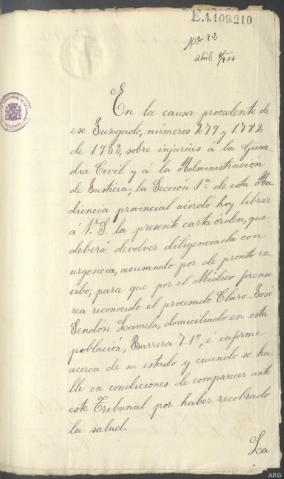 E.1.109.210
Nº 82
abril
En la causa procedente de
ese Juzgado, números 279, y 1782
de 1933, sobre injurias a la Guar-
dia Civil y á la Administración
de Justicia; la Sección 1ª de esta Au-
diencia provincial acordó hoy librar
á V.S. la presente carta órden, que
deberá devolver diligenciada con
urgencia, acusando por de pronto re-
cibo, para que por el Médico forense
sea reconocido el procesado Claro José
Sendón Lamela, domiciliado en esta
población, Barrera 7.1º, e informe
acerca de su estado y cuando se ha-
lle en condiciones de comparecer ante
este Tribunal por haber recobrado
la salud.
La
ARG